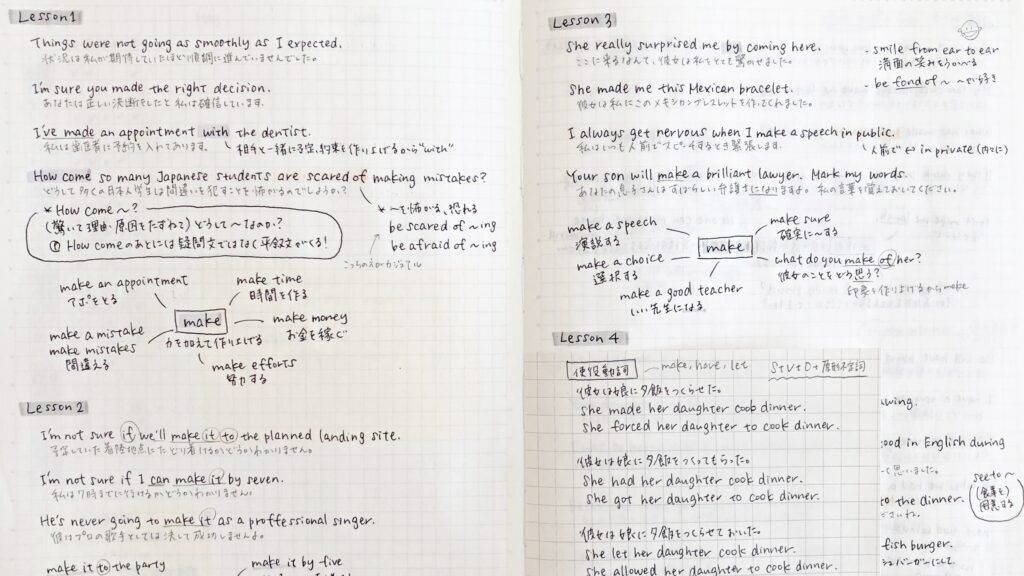 Lesson 1
Things were not going as smoothly as I expected.
状況は私が期待していたほど順調に進んでいませんでした。
I'm sure you made the right decision.
あなたは正しい決断をしたと私は確信しています。
I've made an appointment with the dentist.
私は歯医者に予約を入れてあります。
相手と一緒に予定、約束を作り上げるから"with"
How come so many Japanese students are scared of making mistakes?
どうして多くの日本人学生は間違いを犯すことを怖がるのでしょうか?
* How come ~?
(驚いて理由・原因をたずねる) どうして~なのか?
How comeのあとには疑問文ではなく平叙文がくる!
* ~を怖がる、恐れる
be scared of ~ing
be afraid of ~ing
こっちの方がカジュアル
make an appointment
アポをとる
make time
時間を作る
make a mistake
make mistakes
間違える
make
力を加えて作り上げる
make money
お金を稼ぐ
make efforts
努力する
Lesson 2
I'm not sure if we'll make it to the planned landing site.
予定していた着陸地点にたどり着けるかどうかわかりません。
I'm not sure if I can make it by seven.
私は7時までに行けるかどうかわかりません。
He's never going to make it as a proffessional singer.
彼はプロの歌手としては決して成功しませんよ。
make it to the party
make it by five
Lesson 3
She really surprised me by coming here.
ここに来るなんて、彼女は私をとても驚かせました。
- smile from ear to ear
満面の笑みをうかべる
- be fond of ~ ~が好き
She made me this Mexican bracelet.
彼女は私にこのメキシカンブレスレットを作ってくれました。
I always get nervous when I make a speech in public.
私はいつも人前でスピーチするとき緊張します。
人前で ↔ in private (内々に)
Your son will make a brilliant lawyer. Mark my words.
あなたの息子さんはすばらしい弁護士になりますよ。私の言葉を覚えておいてください。
make a speech
演説する
make sure
確実に~する
make a choice
選択する
make
what do you make of her?
彼女のことをどう思う?
印象を作り上げるからmake
make a good teacher
いい先生になる
Lesson 4
使役動詞
make, have, let
S+V+O+原形不定詞
彼女は娘に夕飯をつくらせた。
She made her daughter coob dinner.
She forced her daughter to cook dinner.
彼女は娘に夕飯をつくってもらった。
She had her daughter cook dinner.
She got her daughter to cook dinner.
彼女は娘に夕飯をつくらせておいた。
She let her daughter cook dinner.
She allowed her daughter to cook dinner.
wing.
ood in English during
って思いました。
to the dinner.
ださいね。
see to ~
(食事を)
用意する
fish burger.